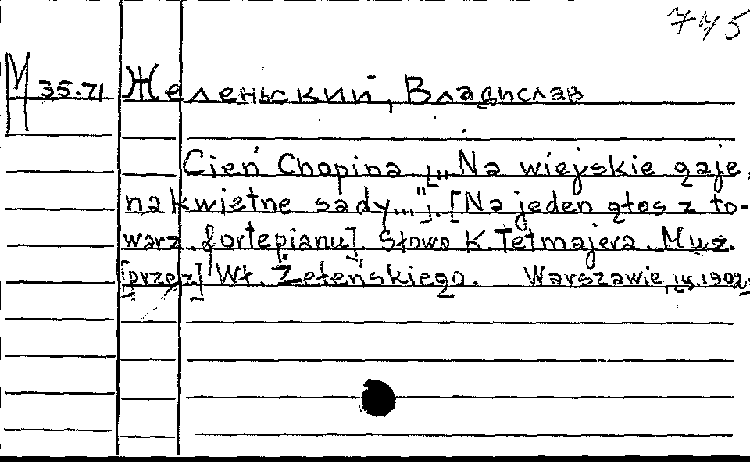 745
М 35.71 Желеньский, Владислав
Cień Chopina ["Na wiejskie gaje,
na kwietne sady..."]. [Na jeden głos z to-
warz. fortepianu]. Słowa K. Tetmajera. Muz.
[przez] Wł. Żeleńskiego. Warszawie, 1902.